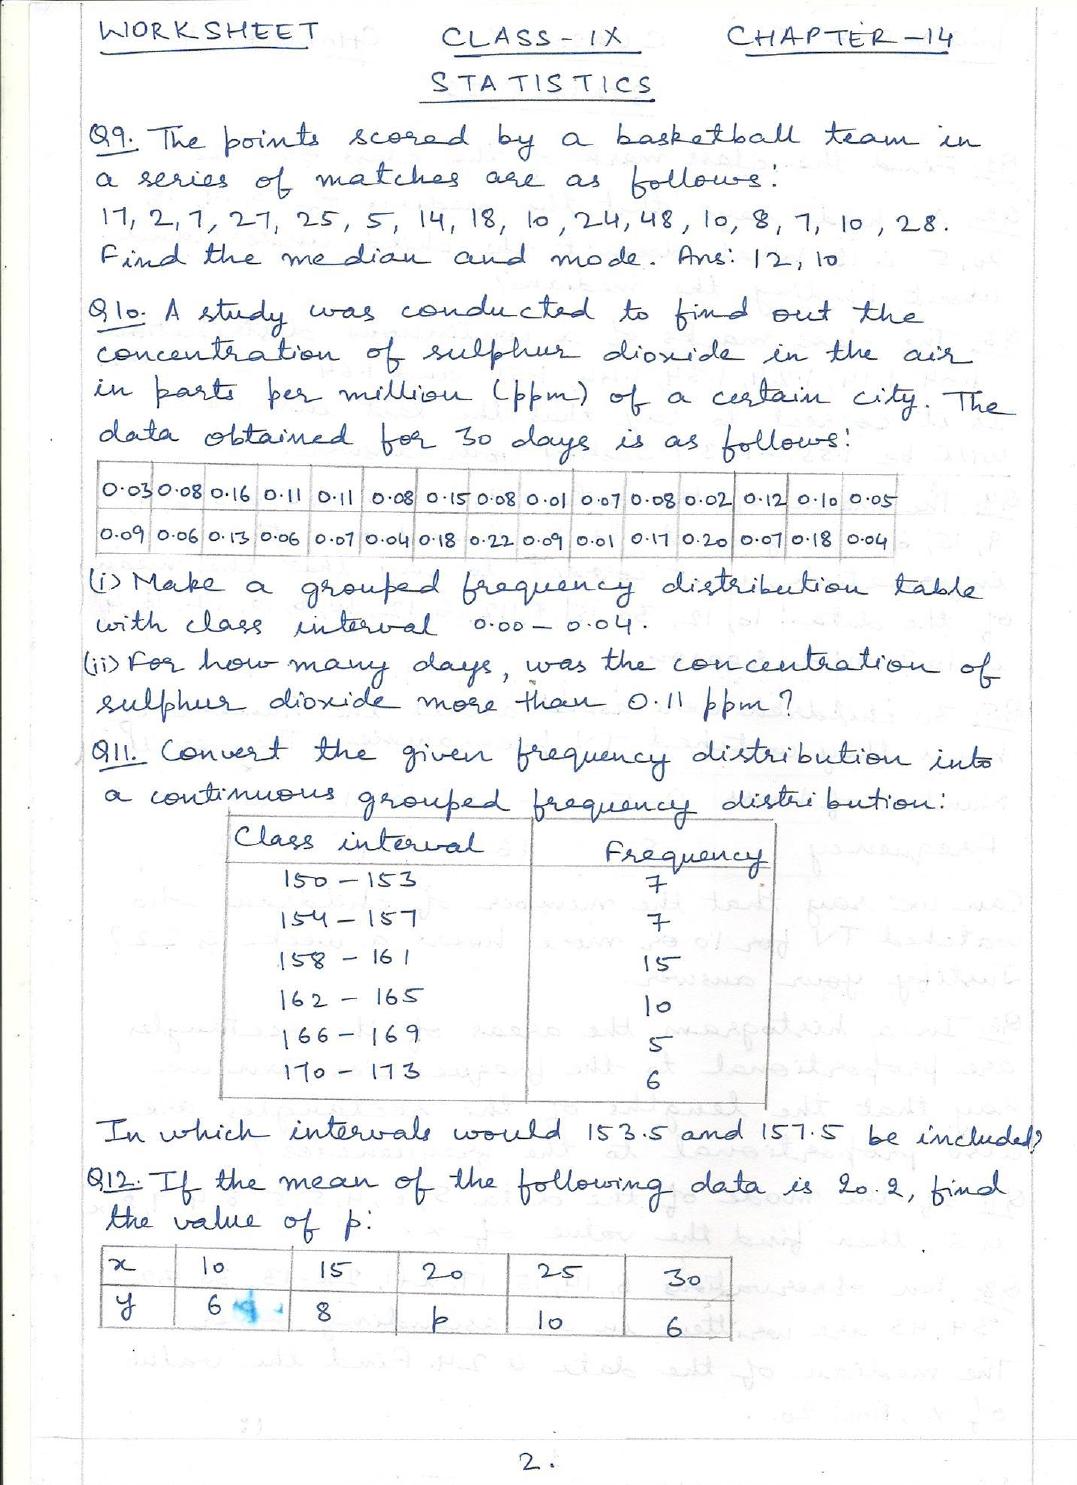 WORKSHEET CLASS-IX CHAPTER-14
STATISTICS
Q9. The points scored by a basketball team in
a series of matches are as follows:
17, 2, 7, 27, 25, 5, 14, 18, 10, 24, 48, 10, 8, 7, 10, 28.
Find the median and mode. Ans: 12, 10
Q10. A study was conducted to find out the
concentration of sulphur dioxide in the air
in parts per million (ppm) of a certain city. The
data obtained for 30 days is as follows:
0.03 0.08 0.16 0.11 0.11 0.08 0.15 0.08 0.01 0.07 0.08 0.02 0.12 0.10 0.05
0.09 0.06 0.13 0.06 0.07 0.04 0.18 0.22 0.09 0.01 0.17 0.20 0.07 0.18 0.04
(i) Make a grouped frequency distribution table
with class interval 0.00 - 0.04.
(ii) For how many days, was the concentration of
sulphur dioxide more than 0.11 ppm?
Q11. Convert the given frequency distribution into
a continuous grouped frequency distribution:
Class interval Frequency
150 - 153 7
154 - 157 7
158 - 161 15
162 - 165 10
166 - 169 5
170 - 173 6
In which intervals would 153.5 and 157.5 be included?
Q12. If the mean of the following data is 20.2, find
the value of p:
x 10 15 20 25 30
y 6 8 p 10 6
2.